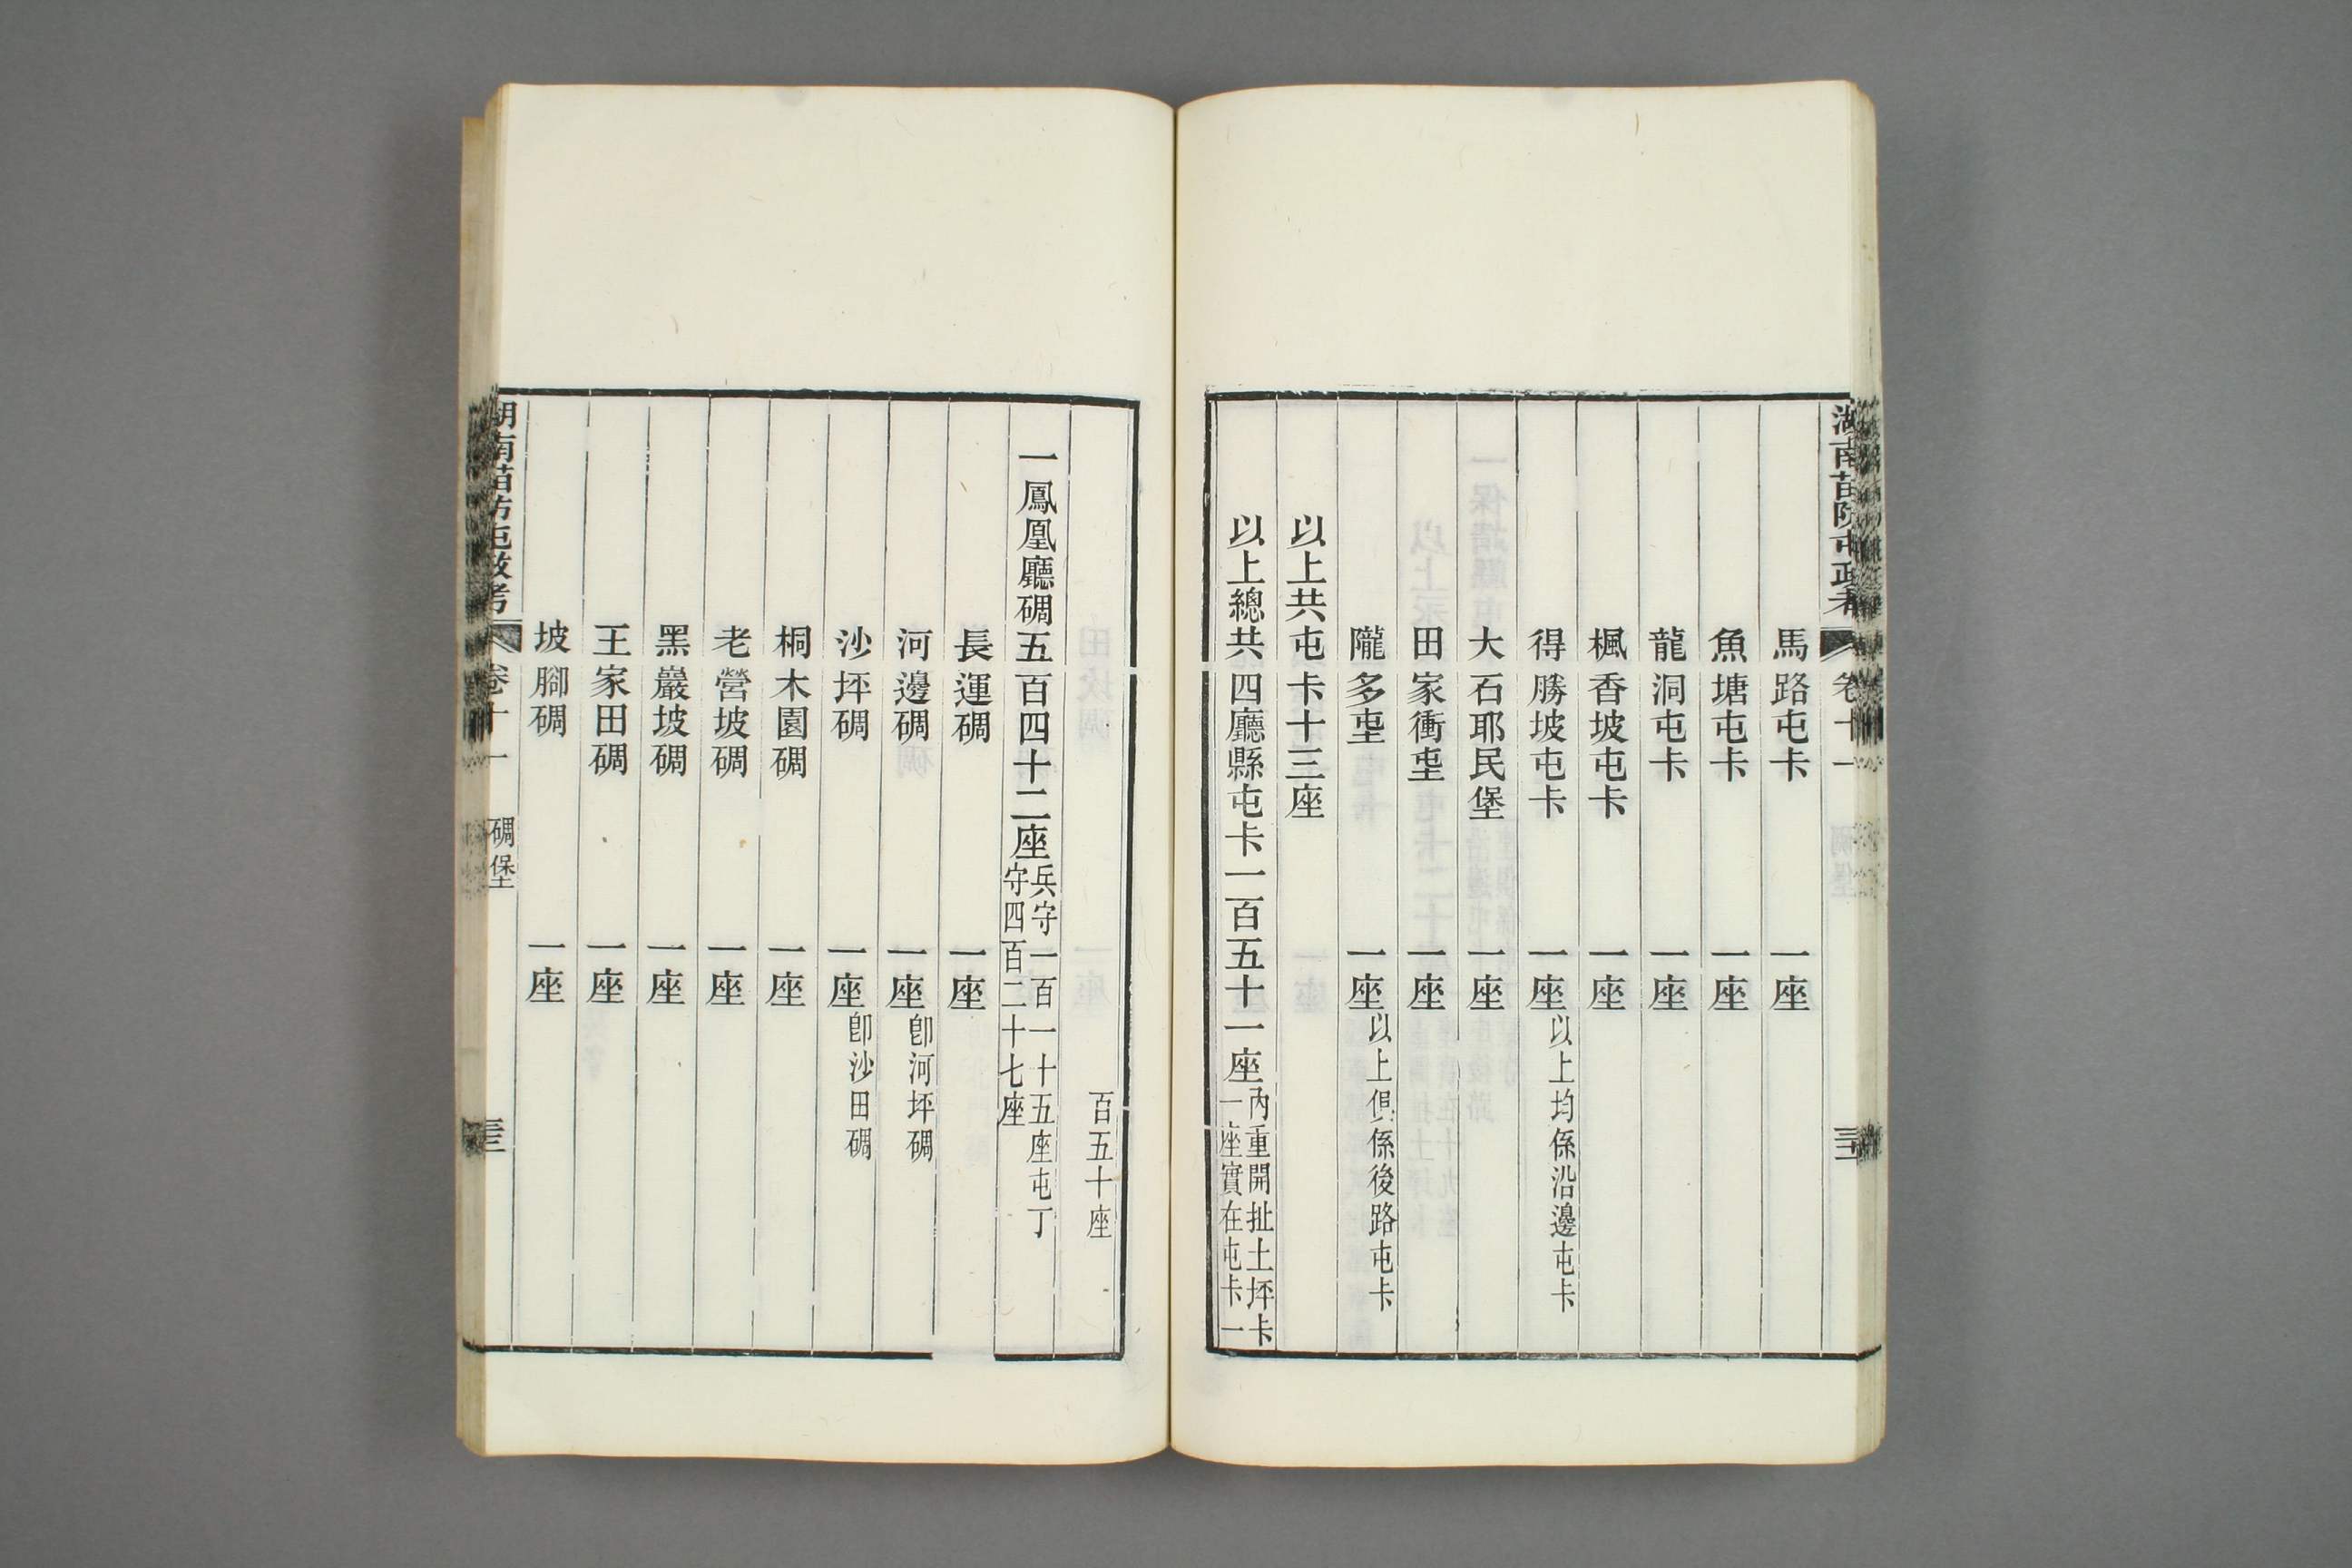 湖南苗防屯政考 卷十一
馬路屯卡 一座
魚塘屯卡 一座
龍洞屯卡 一座
楓香坡屯卡 一座
得勝坡屯卡 一座以上均係沿邊屯卡
大石耶民堡 一座
田家衝𡉏 一座
隴多𡉏 一座以上俱係後路屯卡
以上共屯卡十三座
以上總共四廳縣屯卡一百五十一座內重開扯土坪卡
一座實在屯卡一
百五十座
一鳳凰廳碉五百四十二座兵守一百一十五座屯丁
守四百二十七座
長運碉 一座
河邊碉 一座卽河坪碉
沙坪碉 一座卽沙田碉
桐木園碉 一座
老營坡碉 一座
黑巖坡碉 一座
王家田碉 一座
坡腳碉 一座
湖南苗防屯政考 卷十一 碉堡